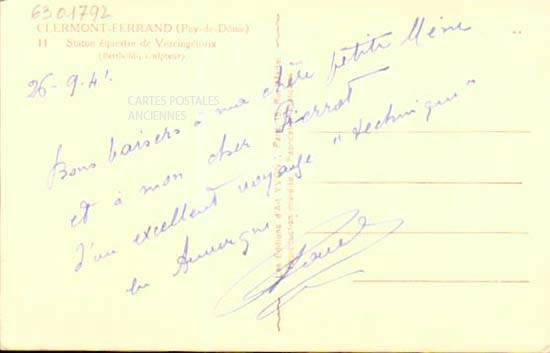 6301792
CLERMONT-FERRAND (Puy-de-Dôme)
11 Statue équestre de Vercingétorix
(Bartholdi, sculpteur)
26-9-41.
CARTES POSTALES
ANCIENNES
Bons baisers à ma chère petite Mème
et à mon cher Pierrot
d'un excellent voyage "technique"
en Auvergne
Les Editions d'Art